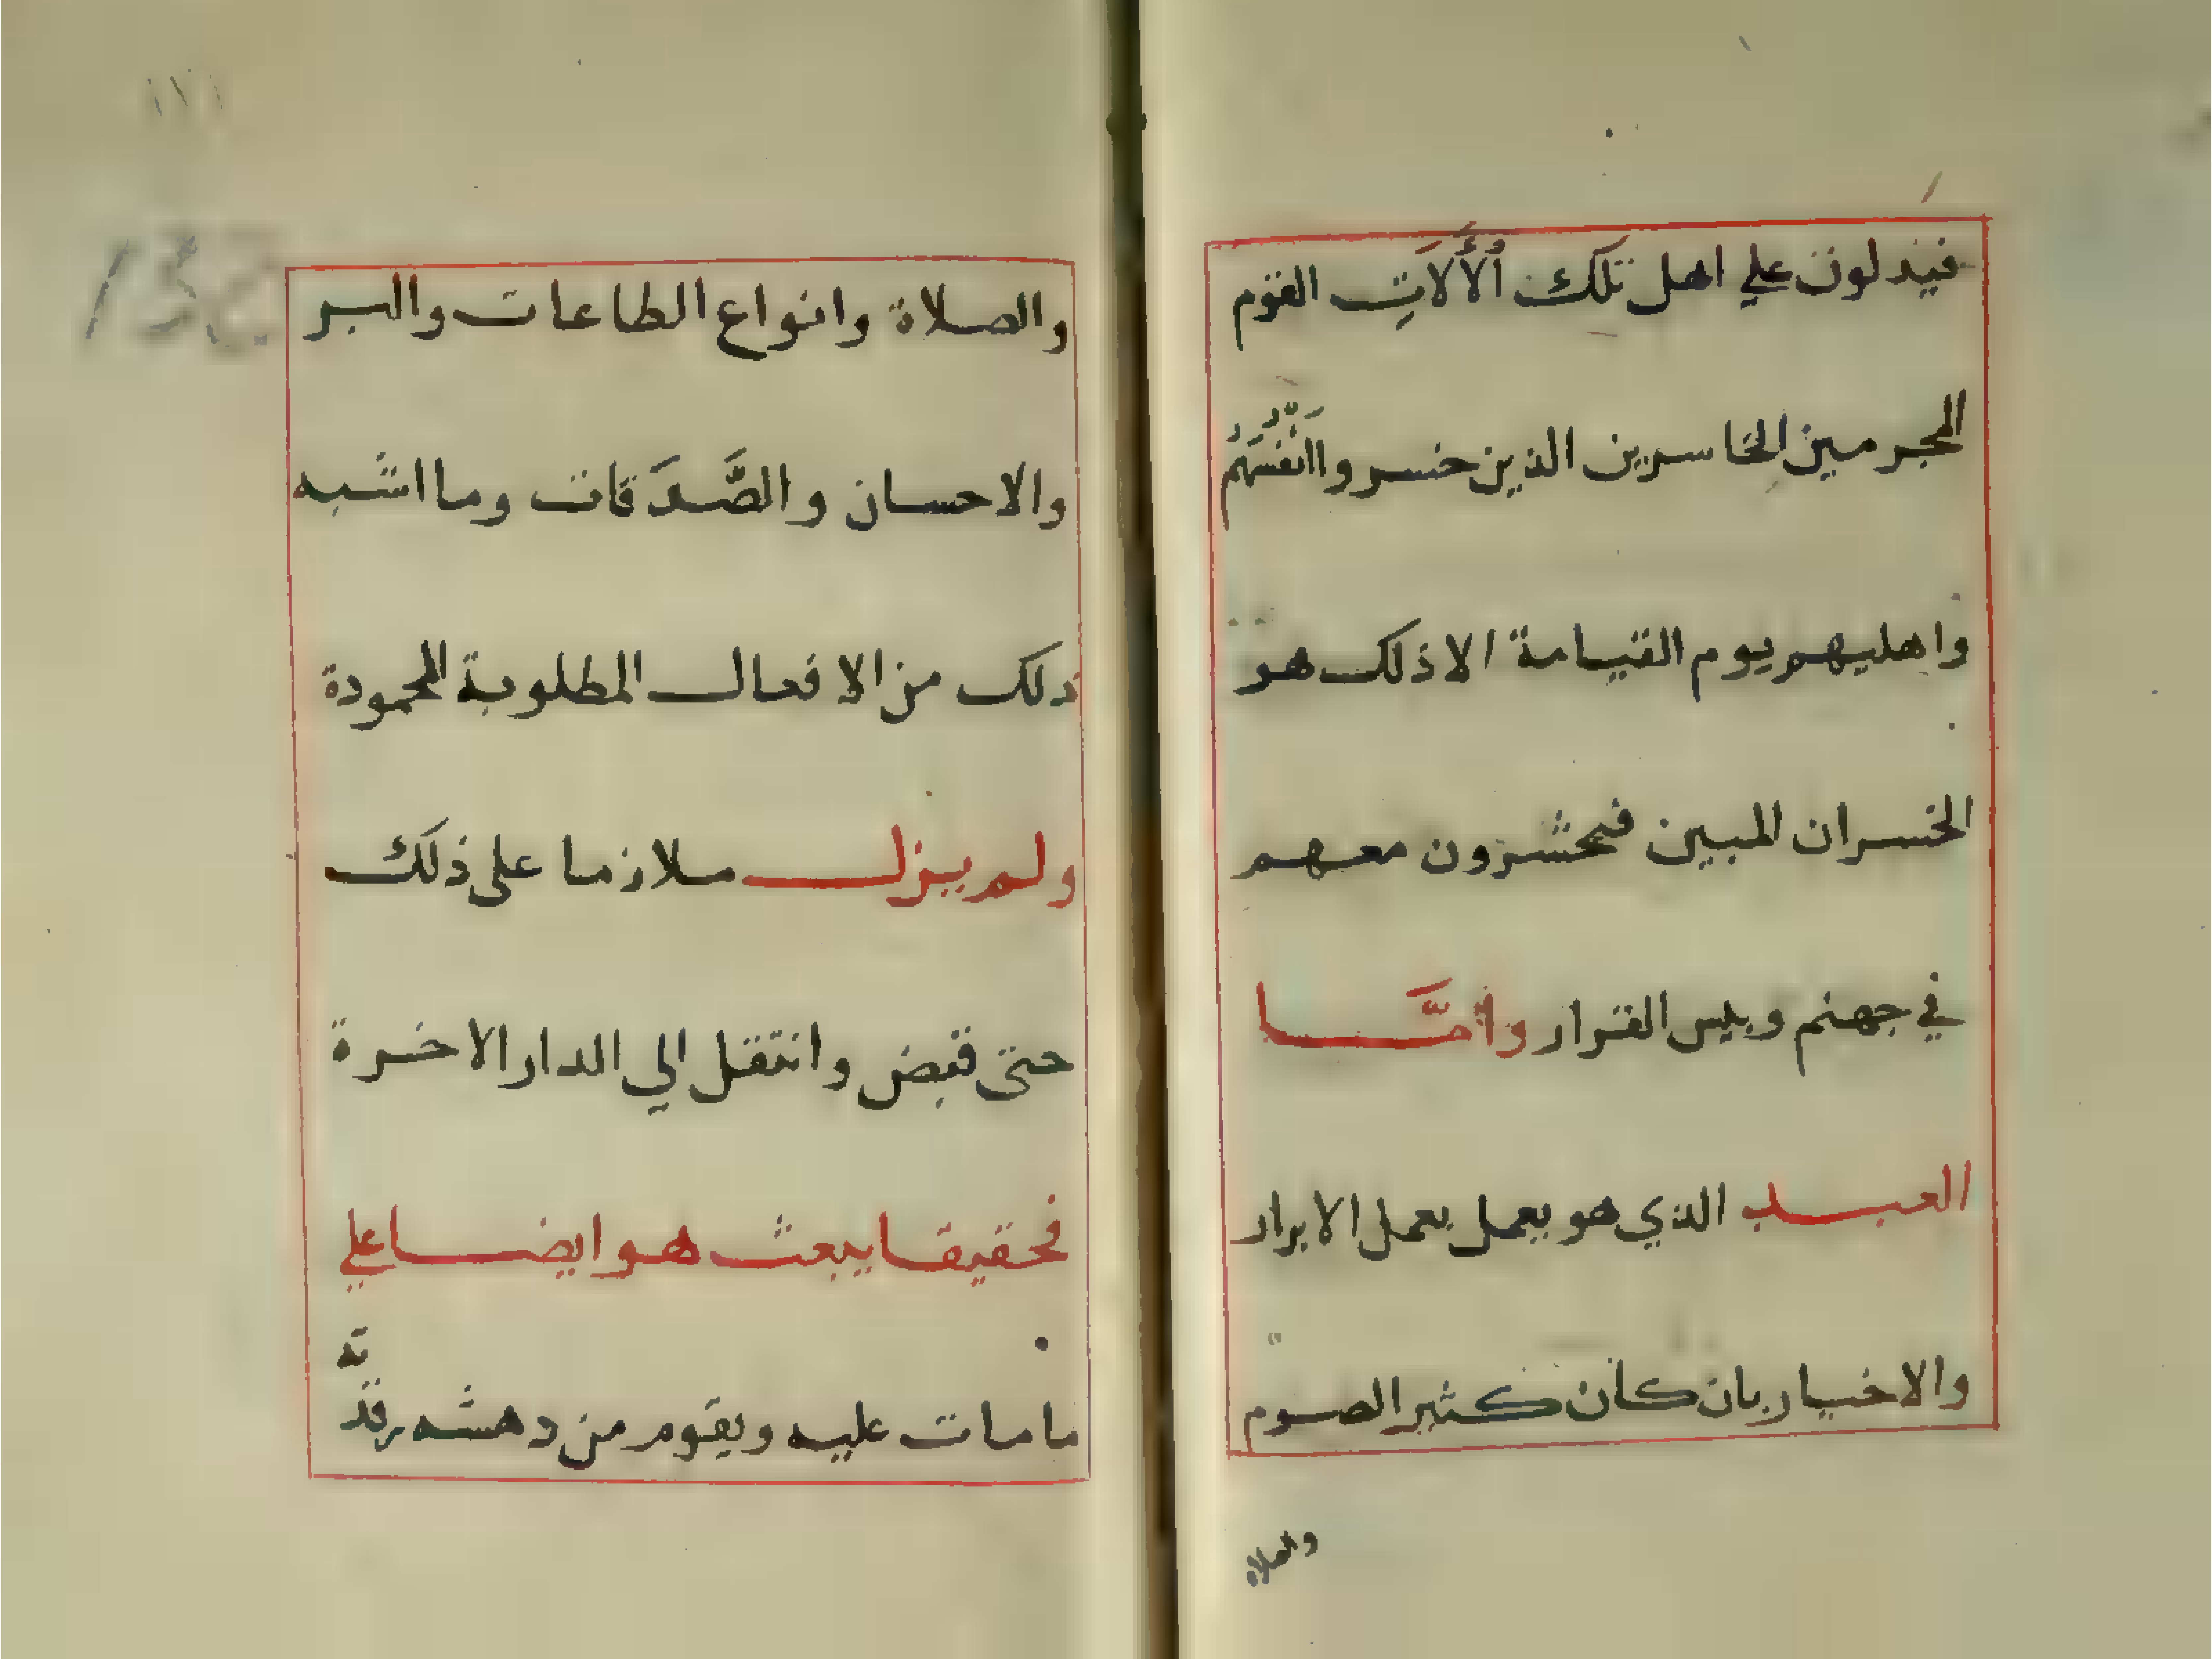 فيدلون علي اهل تلك اُلْأٓلَاتِ القوم
المجرمين الخاسرين الذين خسروا اَنْفُسَهُمْ
واهليهم يوم القيامة الا ذلك هو
الخسران المبين فيحشرون معهم
في جهنم وبيس القرار وامَّا
العبد الذي هو يعمل بعمل الابرار
والاخيار بان كان كثير الصوم
والصلاة
والصلاة وانواع الطاعات والبر
والاحسان والصَّدَقات وما اشبه
ذلك من الافعال المطلوبة المحمودة
ولم يزل ملازما على ذلك
حتى قبض وانتقل الي الدار الاخرة
فحقيقا يبعث هو ايضا علي
ما مات عليه ويقوم من دهشه رقدته